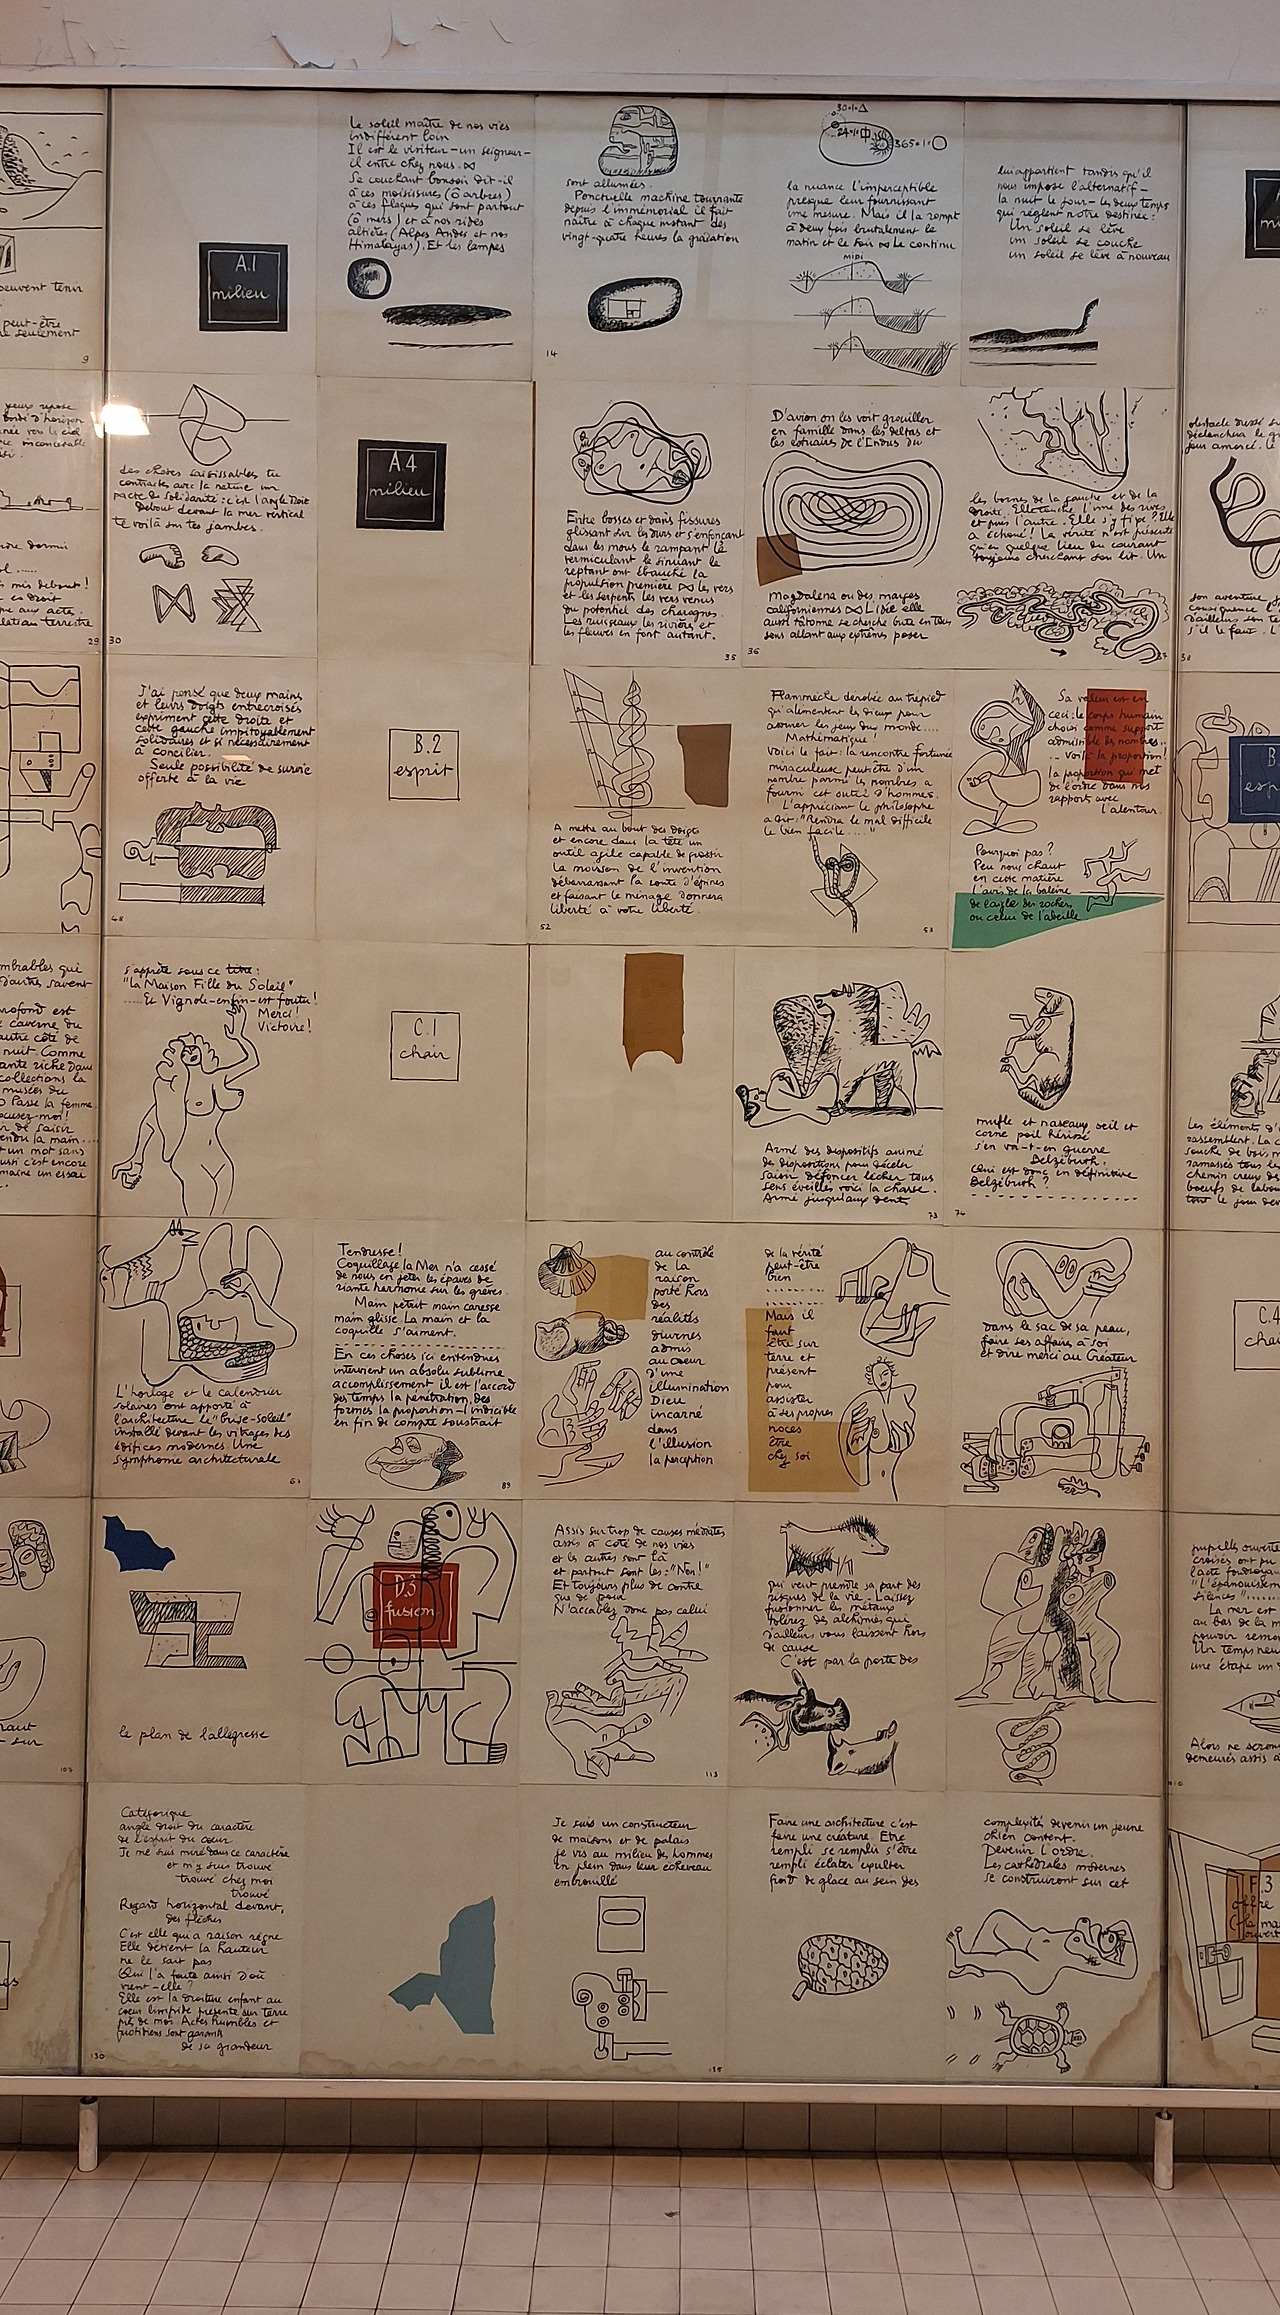 A.1
milieu
Le soleil maître de nos vies
indifférent loin
Il est le visiteur – un seigneur –
il entre chez nous.
Se couchant bonsoir dit-il
à ces moisissures (ô arbres)
à ces flaques qui sont partout
(ô mers) et à nos rides
altières (Alpes Andes et nos
Himalayas). Et les lampes
sont allumées.
Ponctuelle machine tournante
depuis l'immémorial il fait
naître à chaque instant des
vingt-quatre heures la gradation
14
la nuance l'imperceptible
presque leur fournissant
une mesure. Mais il la rompt
à deux fois brutalement le
matin et le soir Le continu
MIDI
lui appartient tandis qu'il
nous impose l'alternatif –
la nuit le jour – les deux temps
qui règlent notre destinée:
Un soleil se lève
un soleil se couche
un soleil se lève à nouveau
peuvent tenir
peut-être
seulement
9
des choses saisissables tu
contractes avec la nature un
pacte de solidarité : c'est l'angle droit
Debout devant la mer vertical
te voilà sur tes jambes.
29
30
A.4
milieu
Entre bosses et dans fissures
glissant sur les durs et s'enfonçant
dans les mous le rampant le
vermiculant le sinuant le
reptant ont ébauché la
propulsion première les vers
et les serpents les vers venus
du potentiel des charognes.
Les ruisseaux les rivières et
les fleuves en font autant.
35
D'avion on les voit grouiller
en famille dans les deltas et
les estuaires de l'Indus du
Magdalena ou des marges
californiennes L'idée elle
aussi tâtonne se cherche bute en tous
sens allant aux extrêmes poser
36
les bornes de la gauche et de la
droite. Elle touche l'une des rives
et puis l'autre. Elle s'y fixe ? Elle
a échoué ! La vérité n'est présente
qu'en quelque lieu du courant
toujours cherchant son lit. Un
37
38
J'ai pensé que deux mains
et leurs doigts entrecroisés
expriment cette droite et
cette gauche impitoyablement
solidaires et si nécessairement
à concilier.
Seule possibilité de survie
offerte à la vie
48
B.2
esprit
A mettre au bout des doigts
et encore dans la tête un
outil agile capable de grossir
la moisson de l'invention
débarrassant la route d'épines
et faisant le ménage donnera
liberté à votre liberté.
52
Flammèche dérobée au trépied
qu'alimentent les dieux pour
assurer les jeux du monde....
Mathématique !
Voici le fait : la rencontre fortunée
miraculeuse peut être d'un
nombre parmi les nombres a
fourni cet outil d'hommes.
L'appréciant le philosophe
a dit : "Rendra le mal difficile
le bien facile ...."
53
Sa valeur est en
ceci : le corps humain
choisi comme support
admissible des nombres...
.. Voilà la proportion !
la proportion qui met
de l'ordre dans nos
rapports avec
l'alentour.
Pourquoi pas ?
Peu nous chaut
en cette matière
l'avis de la baleine
de l'aigle des rochers
ou celui de l'abeille.
s'apprête sous ce titre :
"La Maison Fille du Soleil"
..... Et Vignole – enfin – est foutu !
Merci !
Victoire !
C.1
chair
Armé des dispositifs animé
des dispositions pour déceler
saisir défoncer lécher tous
sens éveillés voici la chasse.
Armé jusqu'aux dents
73
mufle et naseaux oeil et
corne poil hérissé
s'en va-t-en guerre
Belzébuth.
Qui est donc en définitive
Belzébuth ?
74
L'horloge et le calendrier
solaires ont apporté à
l'architecture le "brise-soleil"
installé devant les vitrages des
édifices modernes. Une
symphonie architecturale
Tendresse !
Coquillage la Mer n'a cessé
de nous en jeter les épaves de
riante harmonie sur les grèves.
Main pétrit main caresse
main glisse. La main et la
coquille s'aiment.
En ces choses ici entendues
intervient un absolu sublime
accomplissement il est l'accord
des temps la pénétration des
formes la proportion – l'indicible
en fin de compte soustrait
89
au contrôle
de la
raison
porté hors
des
réalités
diurnes
admis
au coeur
d'une
illumination
Dieu
incarné
dans
l'illusion
la perception
de la vérité
peut-être
bien
Mais il
faut
être sur
terre et
présent
pour
assister
à ses propres
noces
être
chez soi
dans le sac de sa peau,
faire ses affaires à soi
et dire merci au Créateur
C.4
le plan de l'allégresse
D.3
fusion
Assis sur trop de causes médiates
assis à côté de nos vies
et les autres sont là
et partout sont les : "Non !"
Et toujours plus de contre
que de pour
N'accablez donc pas celui
113
qui veut prendre sa part des
risques de la vie. Laissez
fusionner les métaux
tolérez des alchimies qui
d'ailleurs vous laissent hors
de cause
C'est par la porte des
Catégorique
angle droit du caractère
de l'esprit du coeur
Je me suis miré dans ce caractère
et m'y suis trouvé
trouvé chez moi
trouvé
Regard horizontal devant,
des flèches
C'est elle qui a raison règne
Elle détient la hauteur
ne le sait pas
Qui l'a faite ainsi d'où
vient-elle ?
Elle est la droiture enfant au
coeur limpide présente sur terre
près de moi. Actes humbles et
quotidiens sont garants
de sa grandeur
130
Je suis un constructeur
de maisons et de palais
je vis au milieu des hommes
en plein dans leur écheveau
embrouillé
Faire une architecture c'est
faire une créature. Etre
rempli se remplir s'être
rempli éclater exulter
froid de glace au sein des
complexités devenir un jeune
chien content.
Devenir l'ordre.
Les cathédrales modernes
se construiront sur cet
F.3